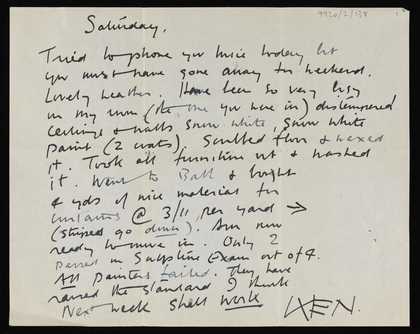 9920/2/138
Saturday.
Tried to phone you twice today but
you must have gone away for weekend.
Lovely weather. Have been so very busy
in my room (the one you were in) distempered
ceilings & walls snow white, snow white
paint (2 coats). Scrubbed floor & waxed
it. Took all furniture out & washed
it. Went to Ball & bought
4 yds of nice material for
curtains @ 3/11 per yard →
(stripes go down). Am now
ready to move in. Only 2
passed in Sculpture Exam out of 4.
All painters failed. They have
raised the standard I think
Next week shall work
KEN.